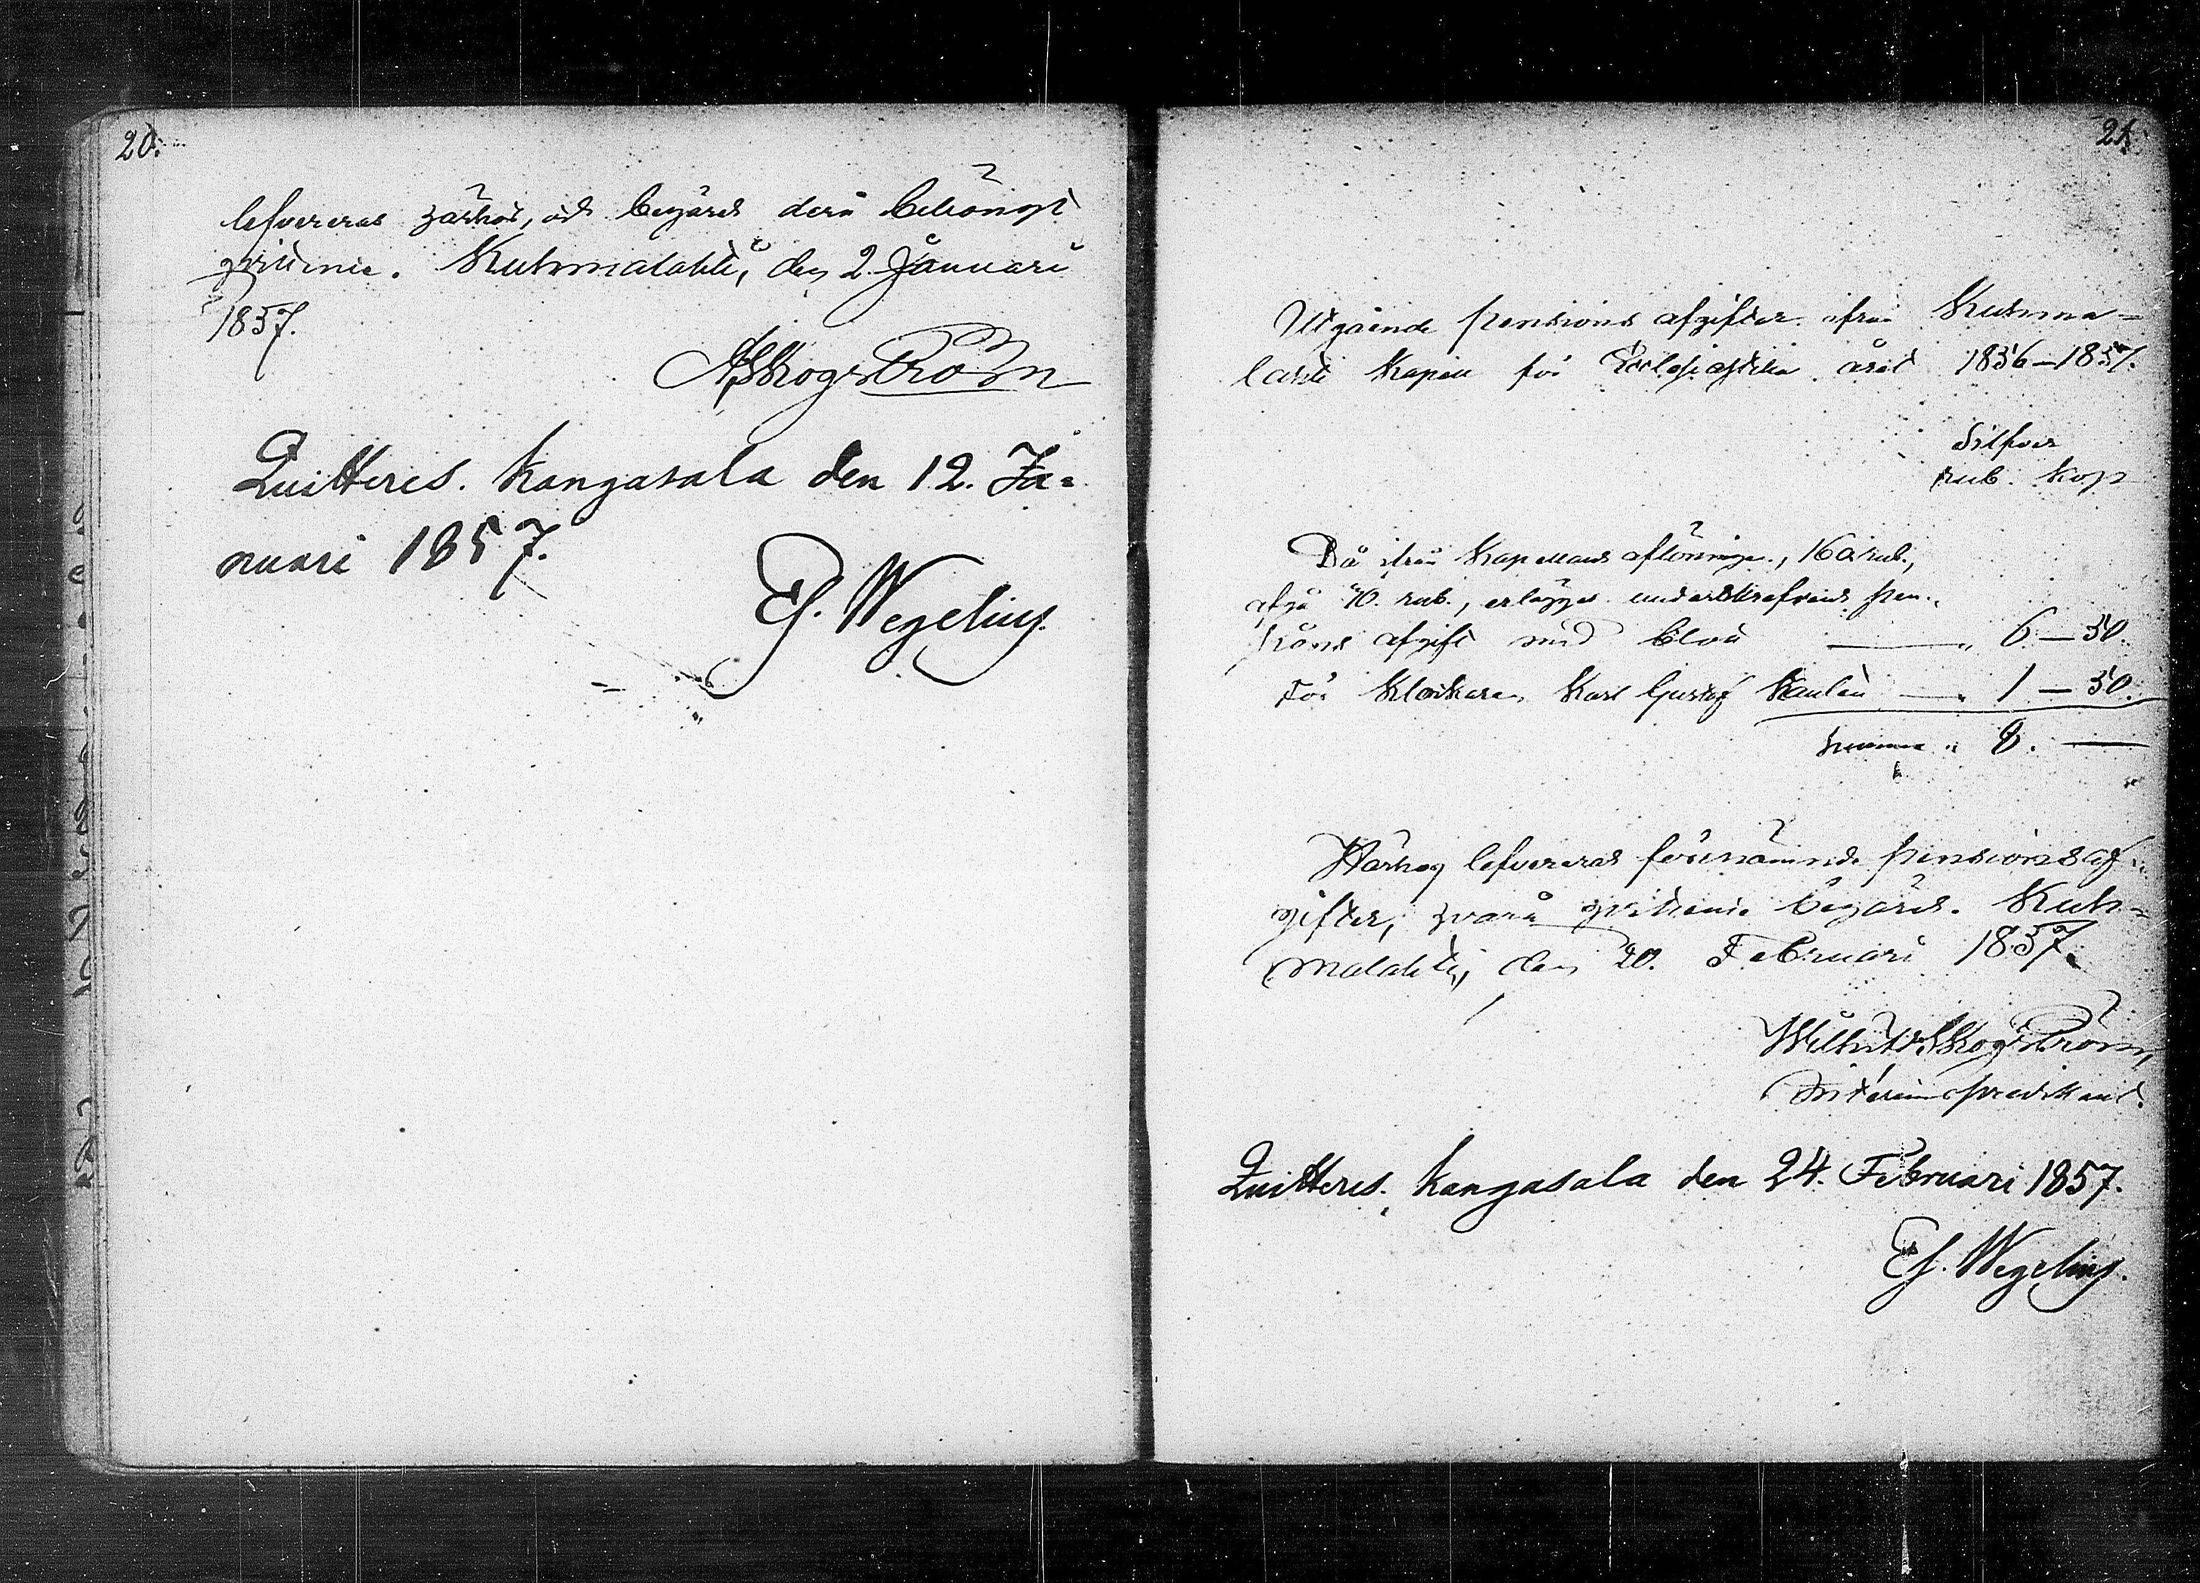 20.
lefvereras härhos, och begäres derå behörigt
qvittence. Kuhmalahti, den 2. Januari
1857.
A Skogström
Quitteres. Kangasala den 12. Ja=
nuari 1857.
Ef. Wegelius.
21.
Utgående pensions afgifter ifrån Kuhma=
lahti Kapell för Ecclesiastika året 1856–1857.
Silfver
rub. kop
Då ifrån Kapellans aflöningen, 160 rub.,
afgå 70. rub., erlägges underskrefvens pen-
sions afgift med blott — " 6 — 50.
För Klockaren Karl Gustaf — " 1 — 50.
Summa " 8. —
Härhos lefvereras förenämnde pensionsaf=
gifter, hvarå qvittence begäres. Kuh=
malahti, den 20. Februari 1857.
Wilh. Skogström,
Interims predikant.
Quitteres. Kangasala den 24. Februari 1857.
Ef. Wegelius.